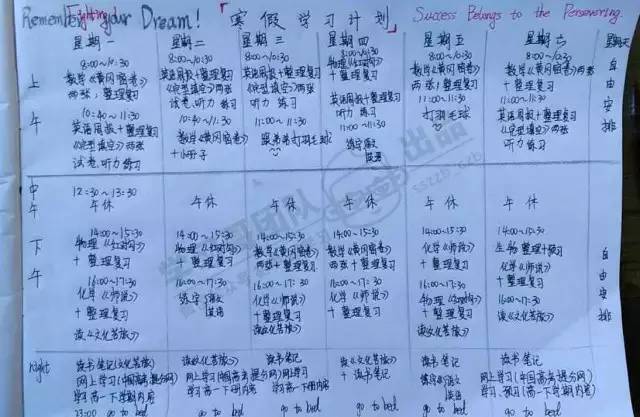 Remember your Dream! 「寒假学习计划」 Success Belongs to the Persevering.
星期一 星期二 星期三 星期四 星期五 星期六 星期天
上午
8:00~10:30
数学《黄冈密卷》
两张，整理复习
10:40~11:30
英语周报+整理复习
《完型填空》两张
试卷.听力练习
8:00~10:30
英语周报+整理复习
《完型填空》两张
试卷.听力练习
10:40~11:30
数学《黄冈密卷》
8:00~10:30
英语周报+整理复习
《完型填空》两张
听力练习
11:00~11:30
跟弟弟打羽毛球
8:00~10:30
英语周报+整理复习
《完型填空》两张
听力练习
11:00~11:30
练字
英语
8:00~10:30
数学《黄冈密卷》
两张，整理复习
11:00~11:30
打羽毛球
8:00~10:30
数学《黄冈密卷》两张
+整理复习
11:00~11:30
英语周报+整理复习
《完型填空》两张
听力练习
自由安排
中午
12:30~13:30
午休 午休 午休 午休 午休 午休
下午
14:00~15:30
物理《红对勾》
+整理复习
16:00~17:30
化学《师说》
+整理复习
读《文化苦旅》
14:00~15:30
物理《红对勾》
+整理复习
16:00~17:30
练字 语文
英语
14:00~15:30
数学《黄冈密卷》
两张+整理复习
16:00~17:30
化学《师说》
+整理复习
读《文化苦旅》
14:00~15:30
数学《黄冈密卷》
两张+整理复习
16:00~17:30
化学《师说》
+整理复习
14:00~15:30
化学《师说》
+整理复习
16:00~17:30
物理《红对勾》
+整理复习
读《文化苦旅》
14:00~15:30
生物整理+预习
化学《师说》
+整理复习
16:00~17:30
读《文化苦旅》
自由安排
night
读书笔记《文化苦旅》
网上学习(中国高考提分网)
学习高一下学期内容
23:00 go to bed
读《文化苦旅》
网上学习(中国高考提分网)
学习高一下册内容
go to bed
读书笔记
go to bed
读《文化苦旅》
+读书笔记
go to bed
读书笔记
练字 语文
英语
go to bed
读书笔记
网上学习(中国高考提分网)
学习、预习(高一下学期)内容
go to bed